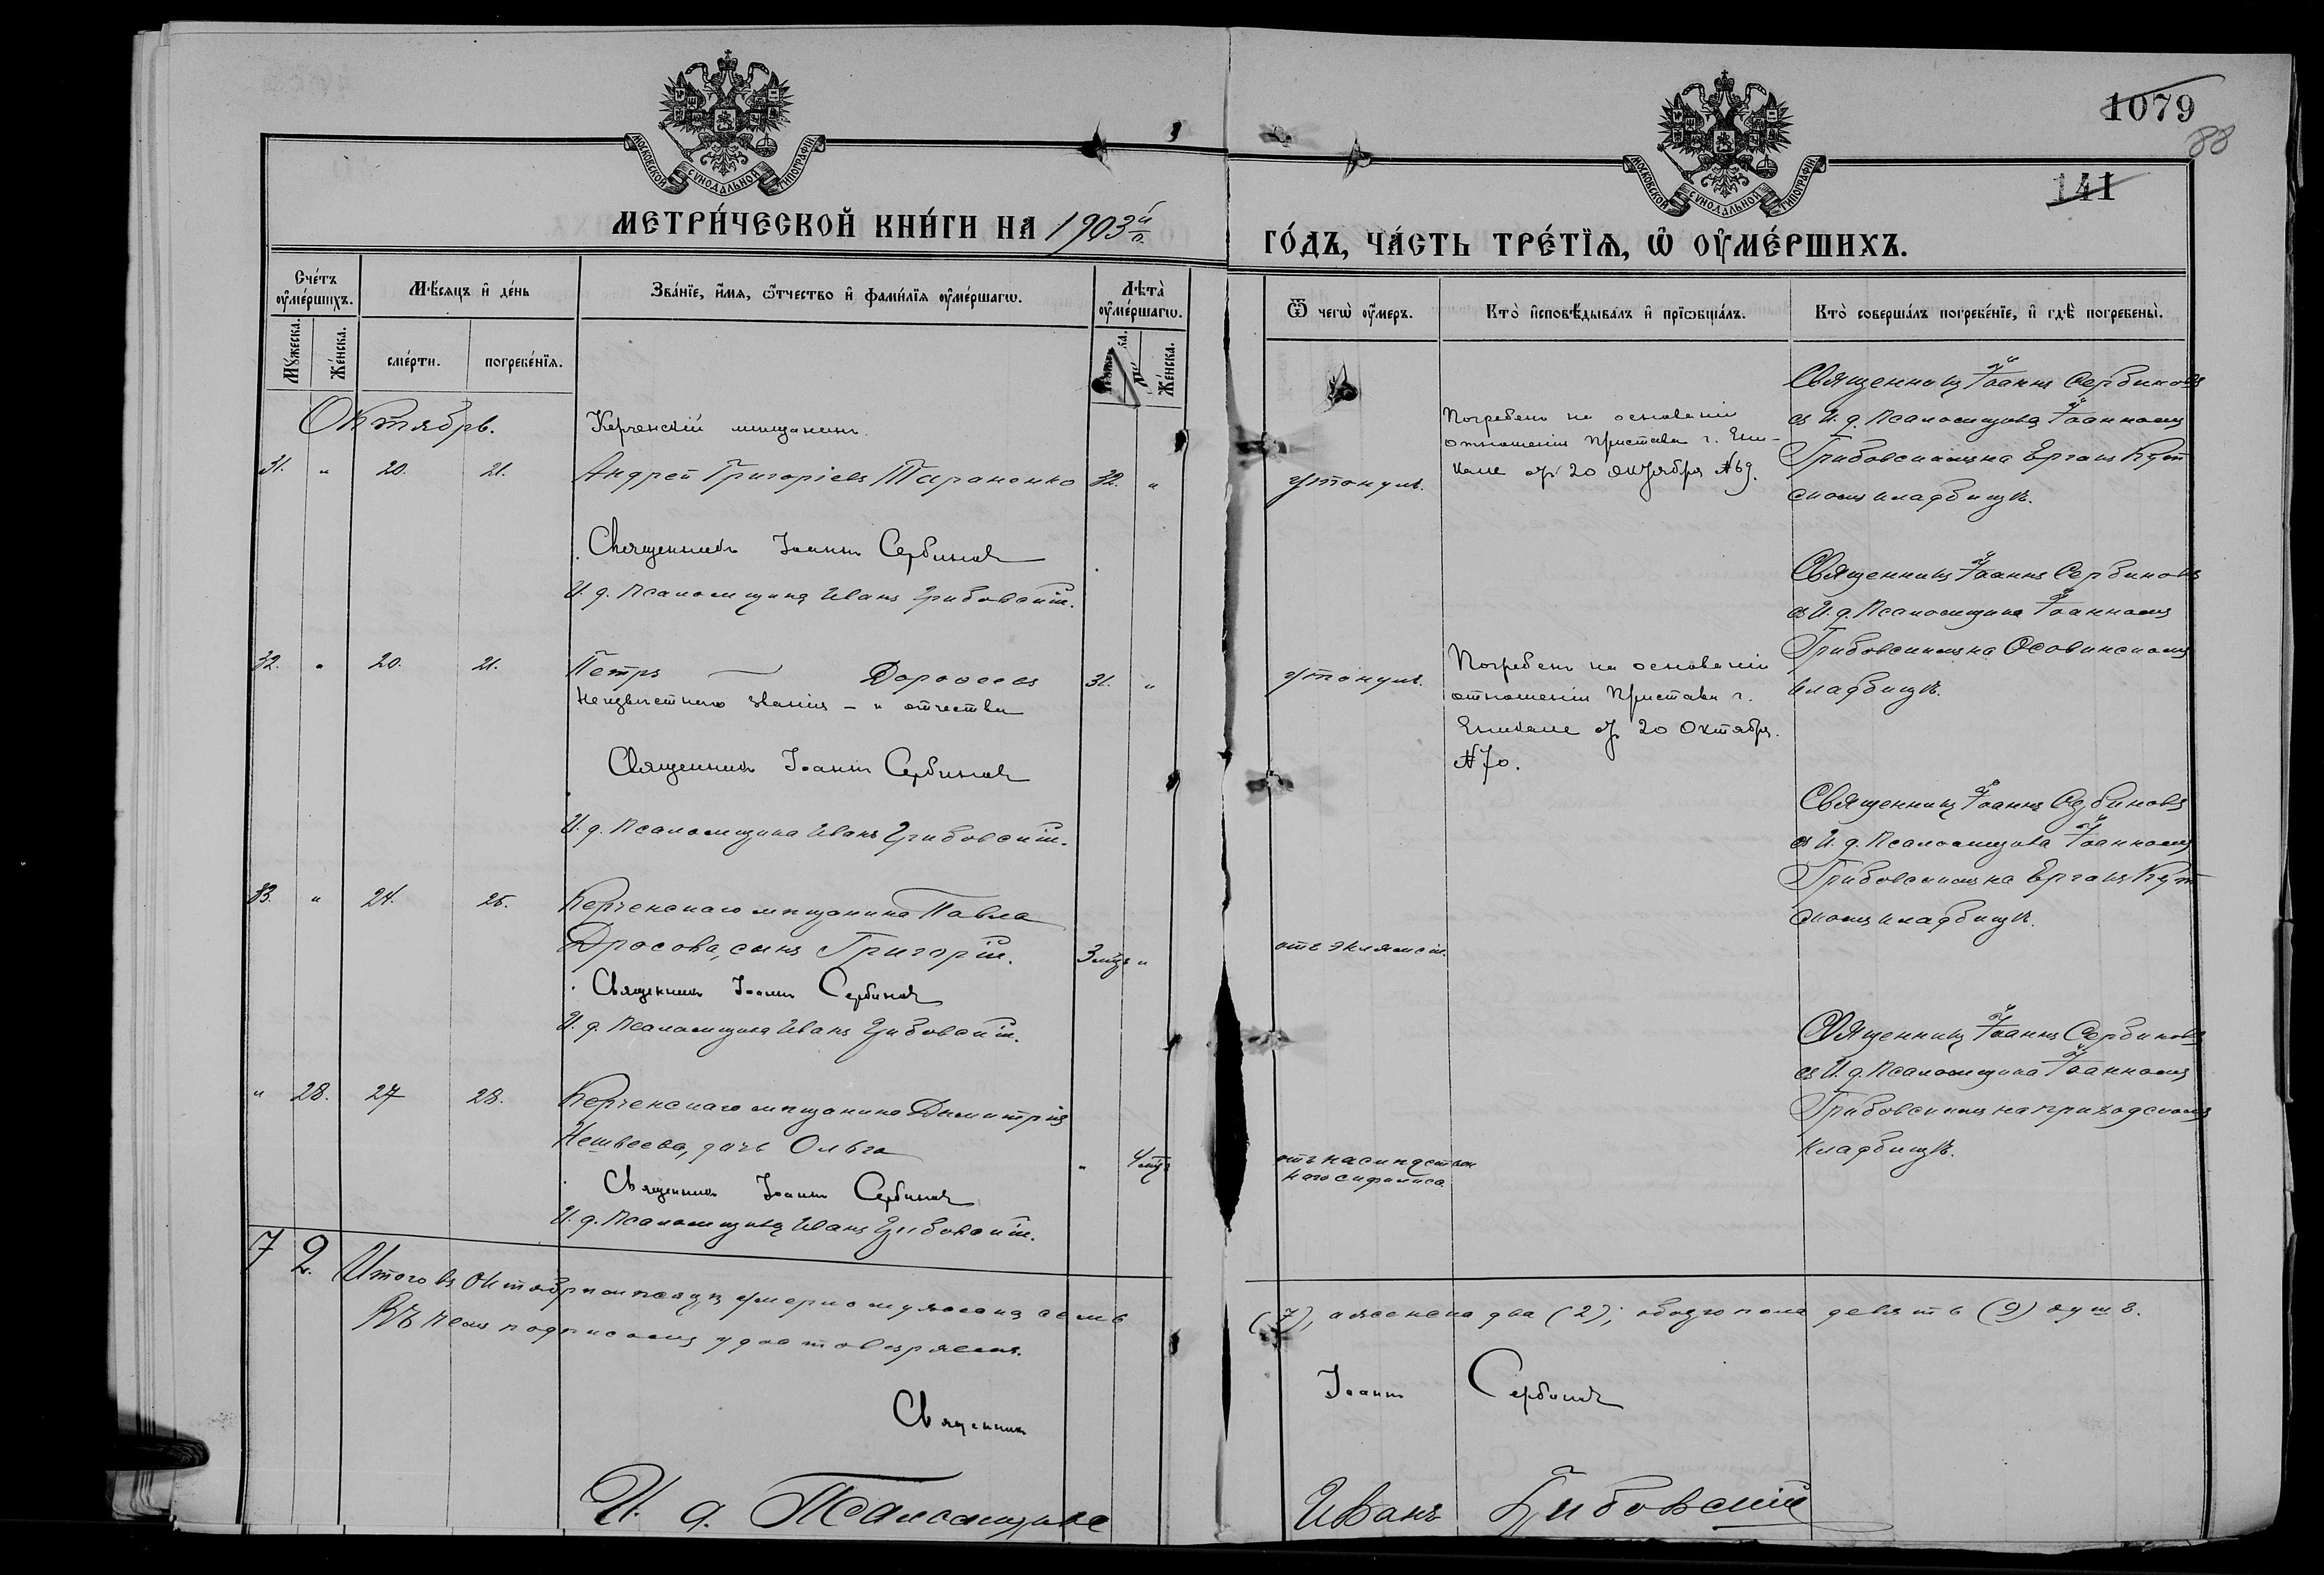 1079
88
141
МОСКОВСКОЙ СѴНОДАЛЬНОЙ ТИПОГРАФІИ
МОСКОВСКОЙ СѴНОДАЛЬНОЙ ТИПОГРАФІИ
МЕТРИ́ЧЕСКОЙ КНИ́ГИ НА 1903й
ГО́ДЪ, ЧА́СТЬ ТРЕ́ТЇѦ, Ѡ ОУ҆МЕ́РШИХЪ.
Сче́тъ оу҆ме́ршихъ.
Мꙋ́жеска.
Же́нска.
Мѣ́сяцъ и҆ де́нь
сме́рти.
погребе́нїѧ.
Зва́нїе, и҆́мѧ, ѻ҆́тчество и҆ фами́лїѧ оу҆ме́ршагѡ.
Лѣта̀ оу҆ме́ршагѡ.
Же́нска.
Ѿ чегѡ̀ оу҆́меръ.
Кто̀ и҆сповѣ́дывалъ и҆ прїѡбща́лъ.
Кто̀ соверша́лъ погребе́нїе, и҆ гдѣ̀ погребены̀.
Октябрь.
Керченскій мещанинъ
31. " 20. 21. Андрей Григоріевъ Тараненко 32. "
утонулъ.
Погребенъ на основаніи
отношенія Пристава г. Ени-
кале отъ 20 октября №69.
Священникъ Іоаннъ Сербиновъ
съ И. д. Псаломщика Іоанномъ
Грибовскимъ на Ерганъ Кут
скомъ кладбищѣ.
Священникъ Іоаннъ Сербиновъ
И. д. Псаломщика Иванъ Грибовскій.
32. " 20. 21. Петръ — Дороѳеевъ 31. "
Неизвѣстнаго званія – и отчества
утонулъ.
Погребенъ на основаніи
отношенія Пристава г.
Еникале отъ 20 Октября.
№70.
Священникъ Іоаннъ Сербиновъ
съ И. д. Псаломщика Іоанномъ
Грибовскимъ на Осовинскомъ
кладбищѣ.
Священникъ Іоаннъ Сербиновъ
И. д. Псаломщика Иванъ Грибовскій.
33. " 24. 25. Керченскаго мѣщанина Павла
Дросова, сынъ Григорій. 3 мѣц. "
отъ эклямсіи.
Священникъ Іоаннъ Сербиновъ
съ И. д. Псаломщика Іоанномъ
Грибовскимъ на Ерганъ Кут
скомъ кладбищѣ.
Священникъ Іоаннъ Сербиновъ
И. д. Псаломщика Иванъ Грибовскій.
" 28. 27 28. Керченскаго мѣщанина Димитрія
дочь Ольга " 4 мѣц.
отъ наслѣдствен
наго сифилиса
Священникъ Іоаннъ Сербиновъ
съ И. д. Псаломщика Іоанномъ
Грибовскимъ на приходскомъ
кладбищѣ.
Священникъ Іоаннъ Сербиновъ
И. д. Псаломщика Иванъ Грибовскій.
7 2. Итого въ Октябрѣ мѣсяцѣ умерло мужеска семь
(7), а женска два (2); обоего пола девять (9) душъ.
Въ чемъ подписомъ удостовѣряемъ.
Священникъ Іоаннъ Сербиновъ
И. д. Псаломщика Иванъ Грибовскій